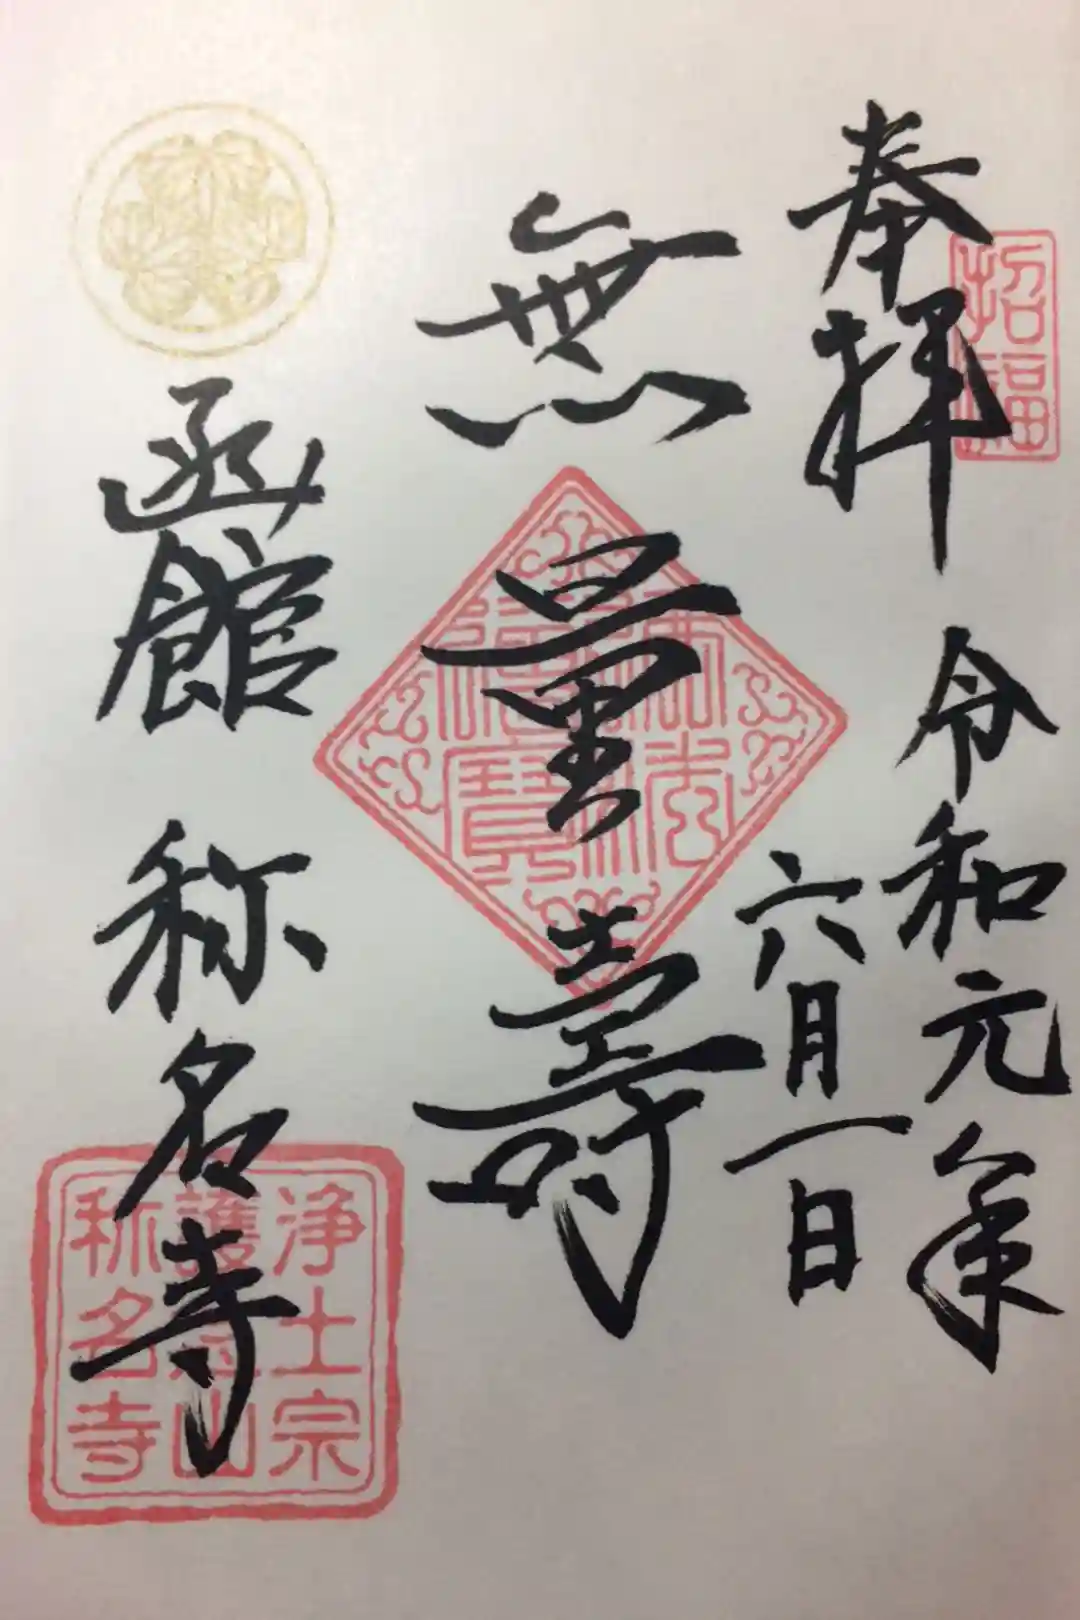 奉拝
招福
令和元年
六月一日
無量寿
佛法
僧寳
函館 称名寺
浄土宗
護念山
称名寺